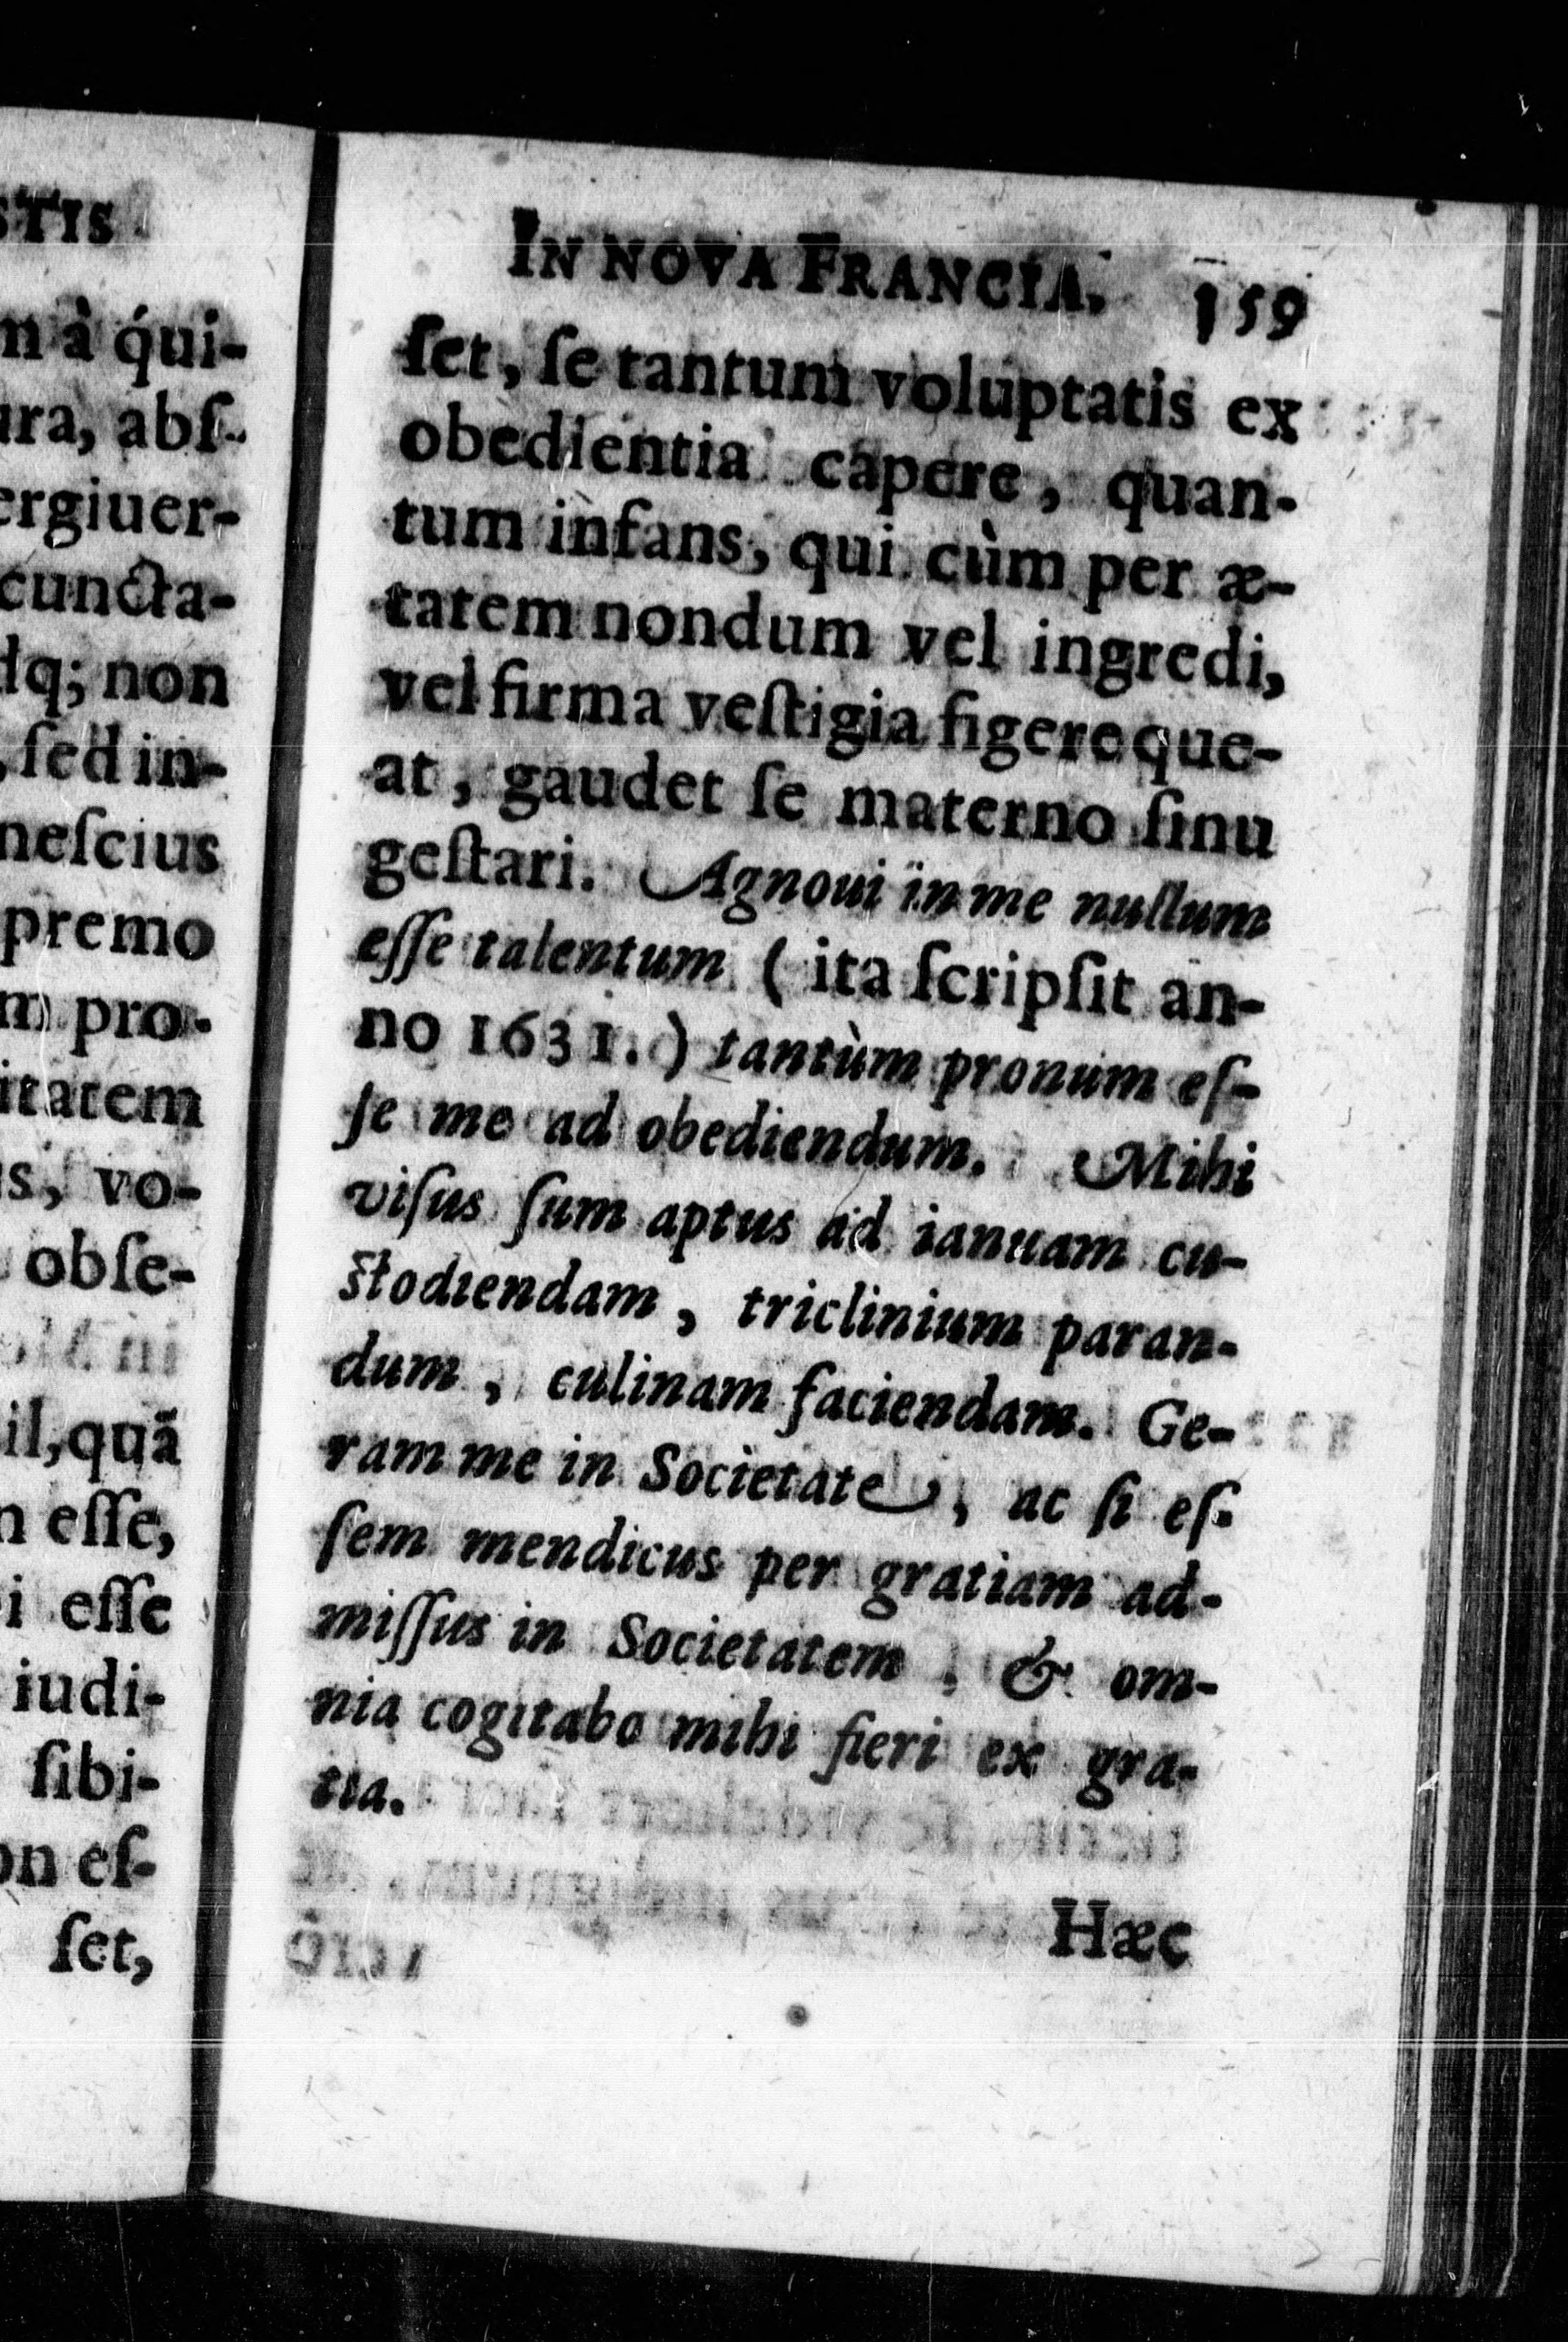 STIS
n à qui-
ura, abſ-
ergiuer-
cuncta-
dq; non
, ſed in-
neſcius
premo
m pro-
itatem
s, vo-
obſe-
il, quã
n eſſe,
i eſſe
iudi-
ſibi-
on eſ-
ſet,
IN NOVA FRANCIA. 159
ſet, ſe tantum voluptatis ex
obedientia capere, quan-
tum infans, qui cùm per æ-
tatem nondum vel ingredi,
vel firma veſtigia figere que-
at, gaudet ſe materno ſinu
geſtari. Agnoui in me nullum
eſſe talentum (ita ſcripſit an-
no 1631.) tantùm pronum eſ-
ſe me ad obediendum. Mihi
viſus ſum aptus ad ianuam cu-
ſtodiendam, triclinium paran-
dum, culinam faciendam. Ge-
ram me in Societate, ac ſi eſ-
ſem mendicus per gratiam ad-
miſſus in Societatem, & om-
nia cogitabo mihi fieri ex gra-
tia.
Hæc